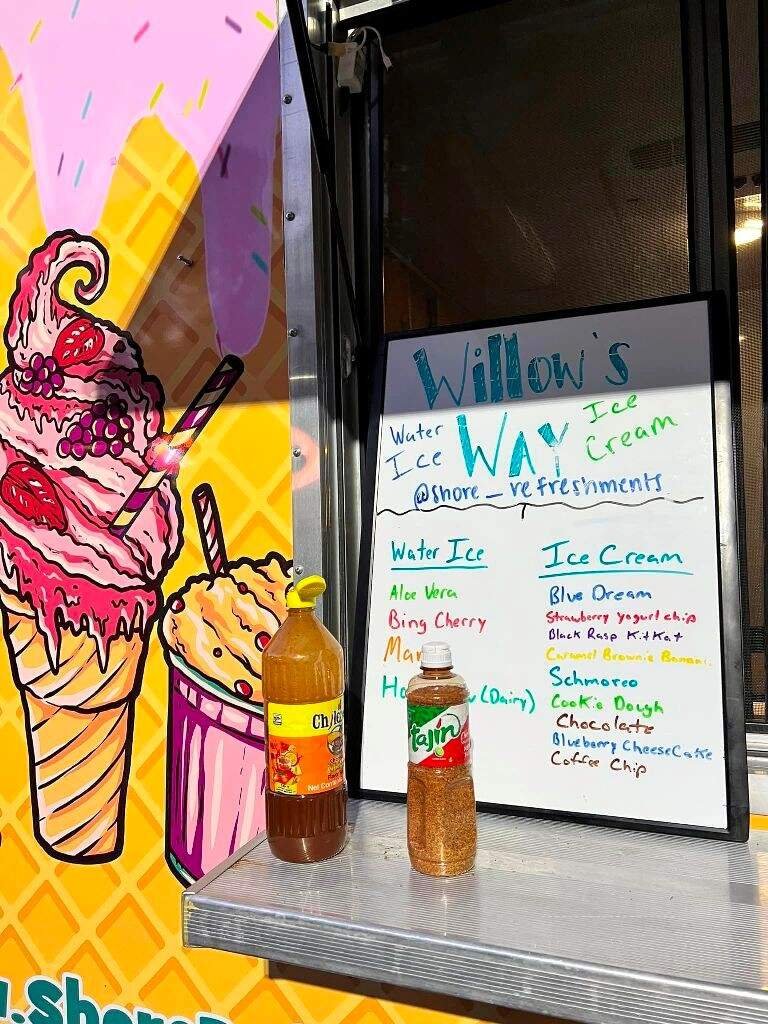 Willow's
Water Ice
WAY
Ice Cream
@shore_refreshments
Water Ice
Aloe Vera
Bing Cherry
(Dairy)
Ice Cream
Blue Dream
Strawberry yogurt chip
Black Rasp KitKat
Caramel Brownie
Schmoreo
Cookie Dough
Chocolate
Blueberry CheeseCake
Coffee Chip
Tajín